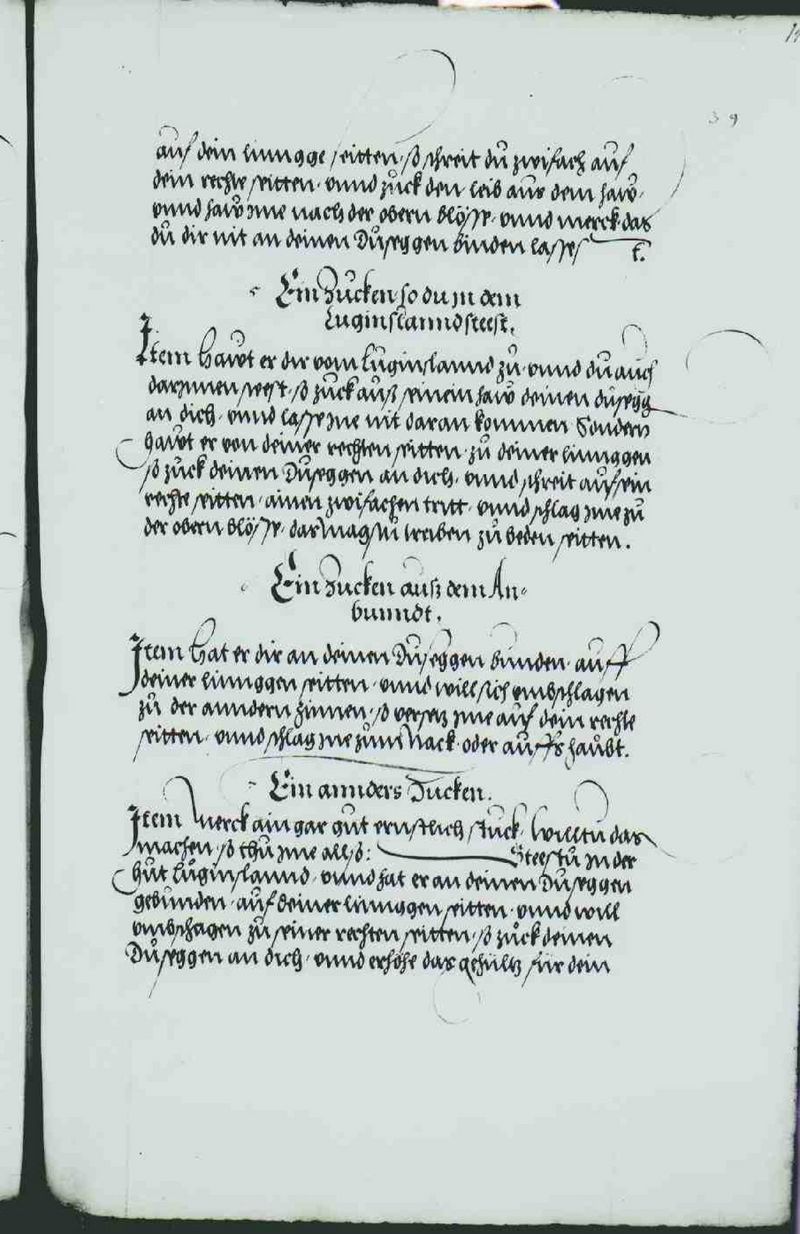 39
auf dein linngge seitten, so schreit du zwifach auf
dein rechte seitten, vnnd zuck den leib aus dem haw,
vnnd haw Ime nach der obern blösse, vnnd merck das
du dir nit an deinen Duseggen binden lasses
Ein Zucken so du In dem
Luginslannd steest.
Item Hawt er dir vom Luginslannd zu, vnnd du auch
darInnen steest, so zuck auß seinem haw deinen dusegg
an dich, vnnd lasse Ime nit daran komen Sondern
hawt er von deiner rechten seitten, zu deiner linnggen
so zuck deinen Duseggen an dich, vnnd schreit auf sein
rechte seitten, ainen zwifachen tritt, vnnd schlag Ime zu
der obern blösse, das magstu treiben zu beden seitten.
Ein Zucken auß dem An-
bunndt.
Item Hat er dir an deinen Duseggen bunden, auff
deiner linnggen seitten, vnnd will sich vmbschlagen
zu der anndern Zinnen, so versez Ime auf dein rechte
seitten, vnnd schlag Ime zum Nack, oder auffs haubt.
Ein annders Zucken.
Item Merck ain gar gut ernstlich stuck, Willtu das
machen, so thu Ime allso: Steestu In der
Hut Luginslannd, vnnd hat er an deinen Duseggen
gebunden, auf deiner linnggen seitten, vnnd will
vmbschagen zu seiner rechten seitten, so zuck deinen
Duseggen an dich, vnnd erhöhe das gehültz für dein